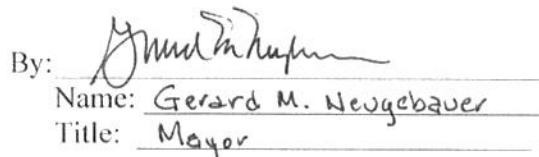 By:
Name: Gerard M. Neugebauer
Title: Mayor